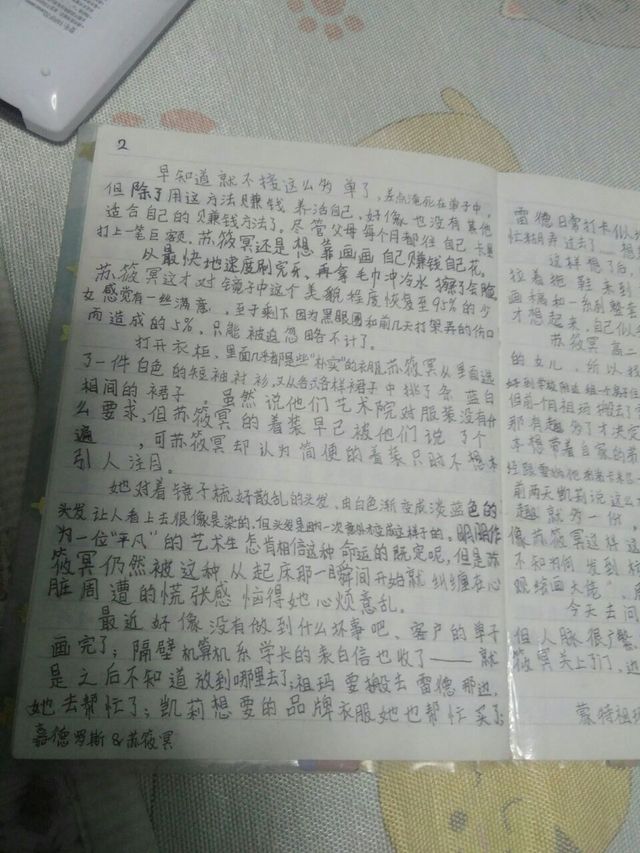 2
早知道就不接这么多单了，差点淹死在单子中，
但除了用这方法赚钱养活自己，好像也没有其他
适合自己的赚钱方法了。尽管父母每个月都往自己卡里
打上一笔巨额，苏筱冥还是想靠画画自己赚钱自己花。
从最快地速度刷完牙，再拿毛巾冲冷水擦了会脸
苏筱冥这才对镜子中这个美貌程度恢复至95%的少
女感觉有一丝满意，至于剩下因为黑眼圈和前几天打架弄的伤口
而造成的5%，只能被迫忽略不计了。
打开衣柜，里面几乎都是些“朴实”的衣服，苏筱冥从里面选
了一件白色的短袖衬衫，又从各式各样裙子中挑了条蓝白
相间的裙子。虽然说他们艺术院对服装没有什
么要求，但苏筱冥的着装早已被他们说了个
遍，可苏筱冥却认为简便的着装只时不想太
引人注目。
她对着镜子梳好散乱的头发，由白色渐变成淡蓝色的
头发让人看上去很像是染的，但头发是因为一次意外才变成这样子的，明明作
为一位“平凡”的艺术生怎肯相信这种命运的既定呢，但是苏
筱冥仍然被这种从起床那一瞬间开始就纠缠在心
脏周遭的慌张感恼得她心烦意乱。
最近好像没有做到什么坏事吧、客户的单子
画完了；隔壁机算机系学长的表白信也收了——就
是之后不知道放到哪里去了；祖玛要搬去雷德那边，
她去帮忙了；凯莉想要的品牌衣服她也帮忙买了；
嘉德罗斯&苏筱冥
雷德日常打卡似
忙糊弄过去了
这样想了后，
拉着拖鞋来到
画稿和一些别墅
才想起来，自己似
苏筱冥高二
的女儿，所以
好到学校附近租一个房子住
但前一个租
那有趣分了才决
本想带着自家的
前两天凯莉说这么
趣就为一份
像苏筱冥这样
不知为何发到
观绘画大佬”，
今天去问
但人脉很广
筱冥关上了门，
蒙特祖玛